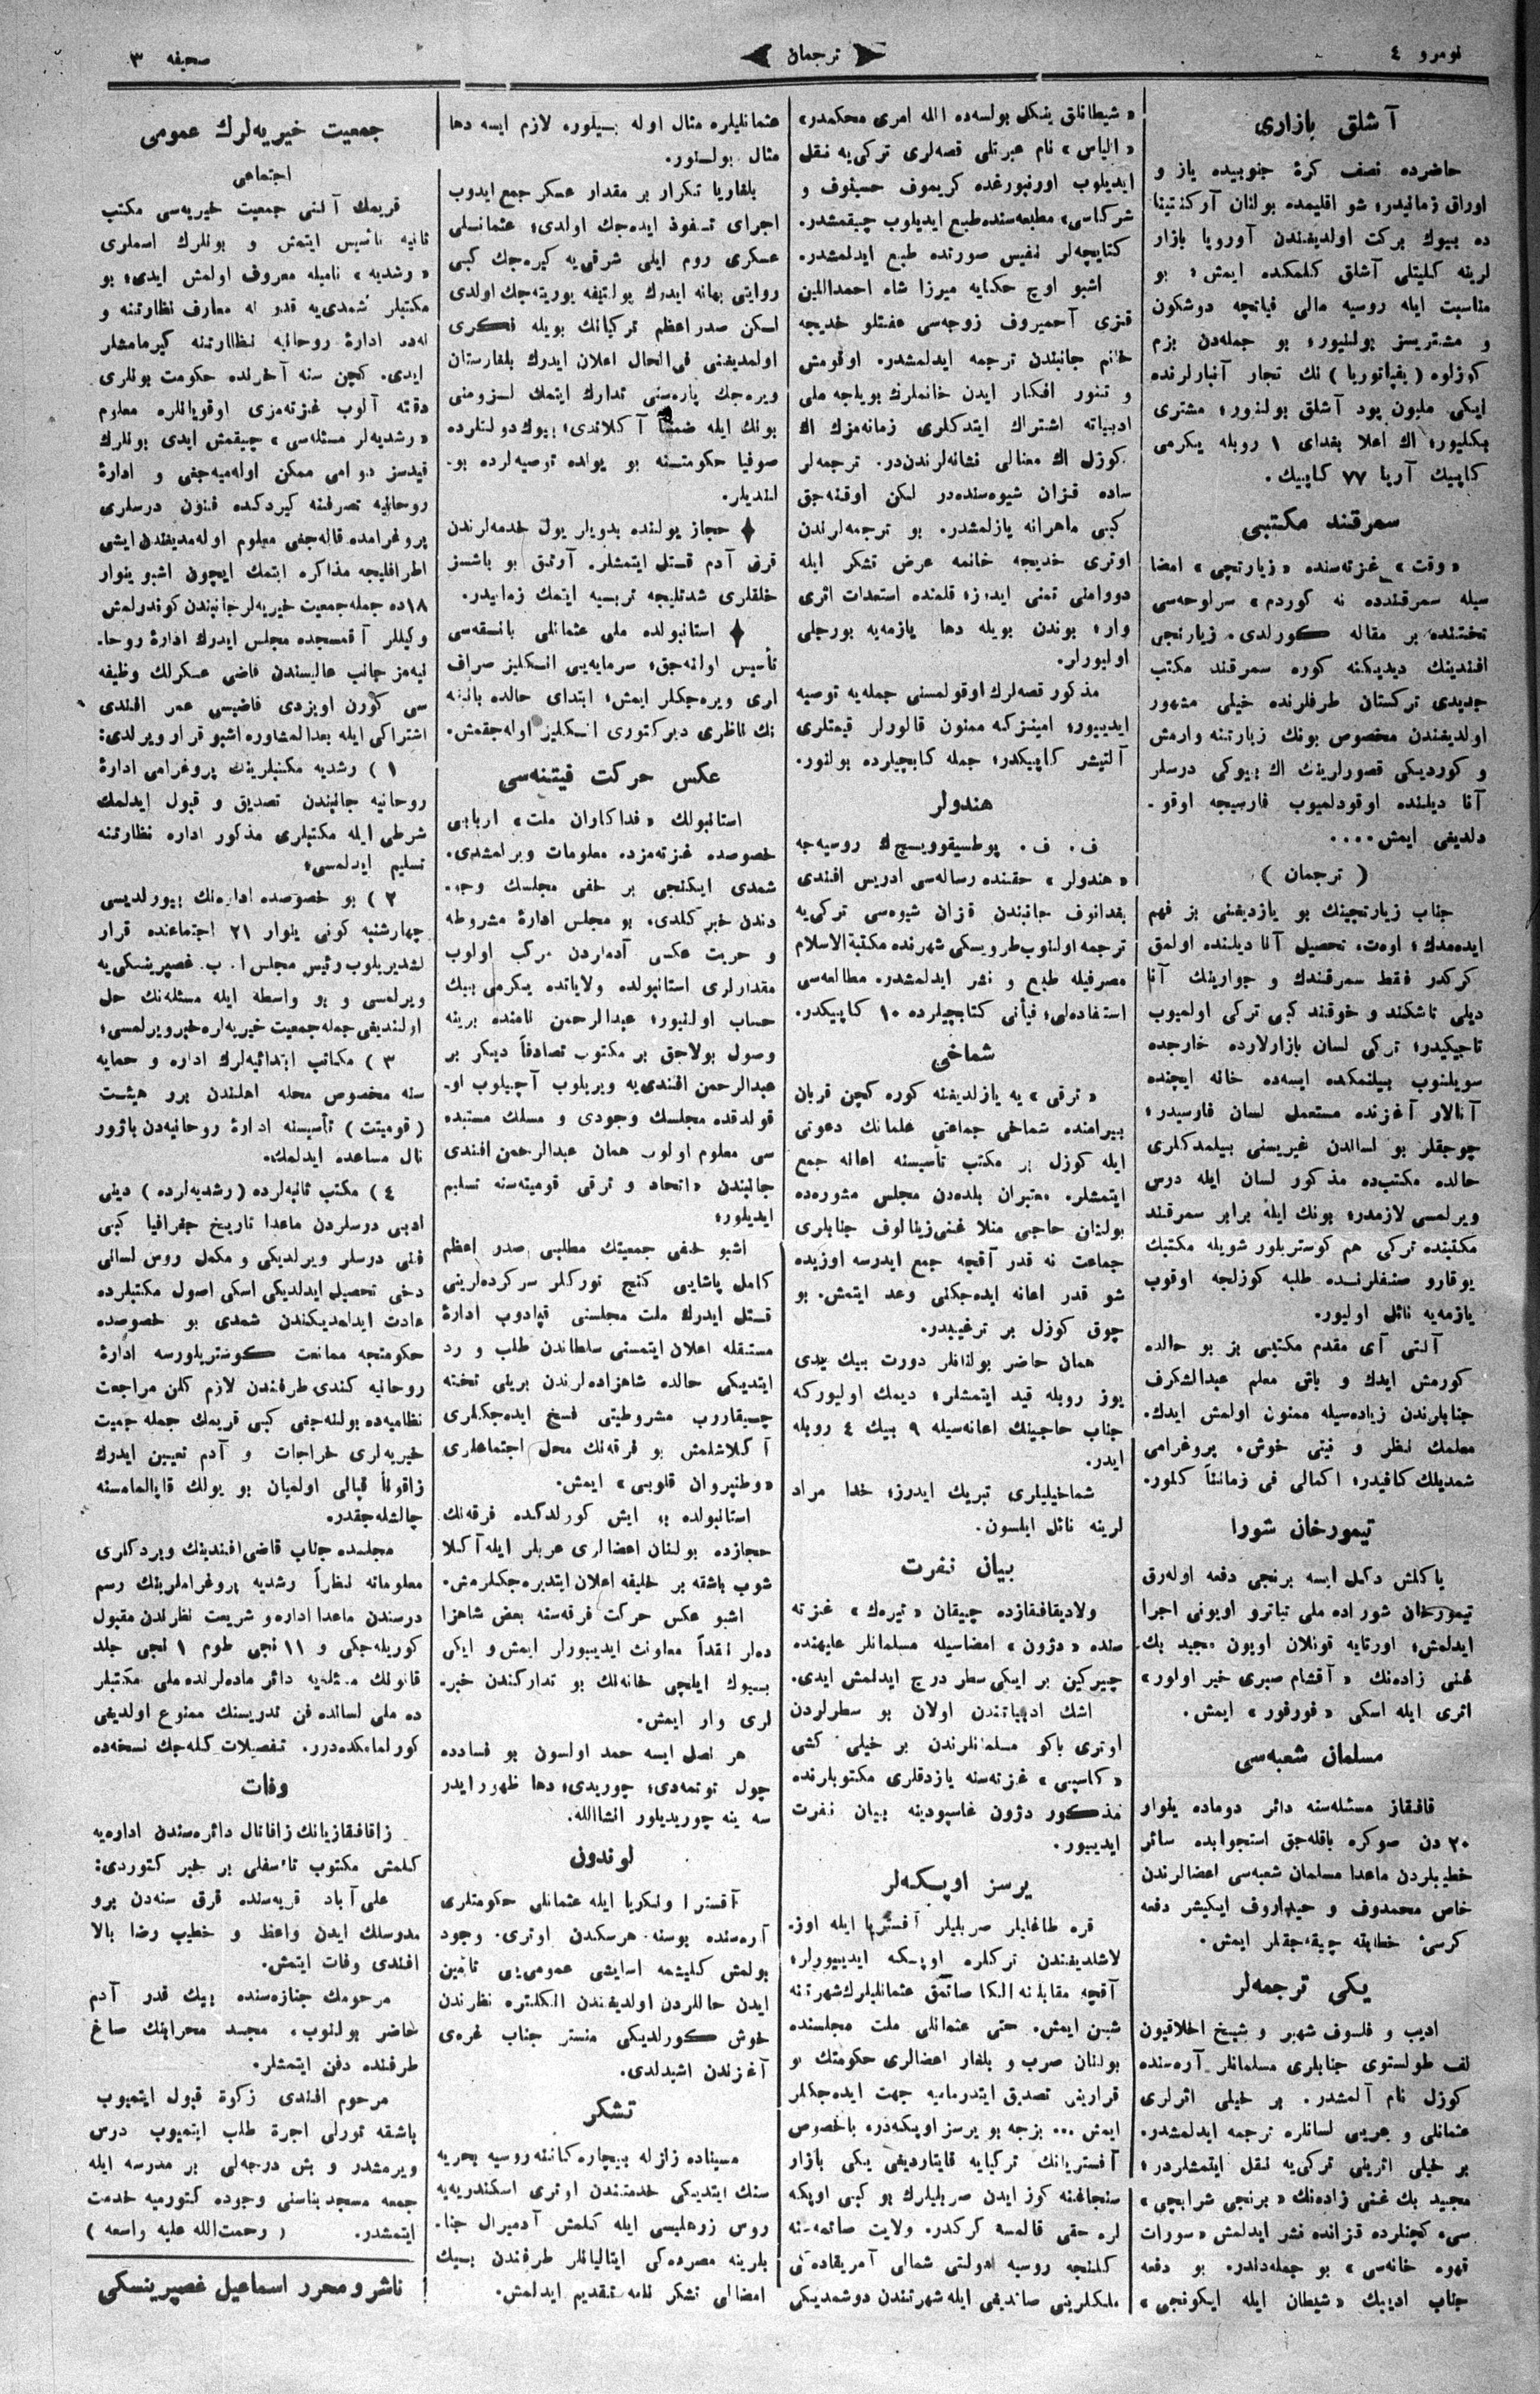 نومرو ٤
ترجمان
صحيفه ٣
آشلق بازارى
حاضرده نصف كرهٔ جنوبيده ياز و
اوراق زمانيدر؛ شو اقليمده بولنان آركنتينا
ده بيوك بركت اولديغندن آوروپا بازار
لرينه كليتلى آشلق كلمكده ايمش؛ بو
مناسبت ايله روسيه مالى فياتجه دوشكون
و مشتريسز بولنيور؛ بو جمله‌دن بزم
كوزلوه (يفپاتوريا) نك تجار آنبارلرنده
ايكى مليون پود آشلق بولنور؛ مشترى
بكليور؛ اك اعلا بغداى ١ روبله يكرمى
كاپيك آرپا ٧٧ كاپيك.
سمرقند مكتبى
«وقت» غزته‌سنده «زيارتچى» امضا
سيله سمرقندده نه كوردم» سرلوحه‌سى
تحتنده بر مقاله كورلدى. زيارتچى
افندينك ديديكنه كوره سمرقند مكتب
جديدى تركستان طرفلرنده خيلى مشهور
اولديغندن مخصوص بونك زيارتنه وارمش
و كورديكى قصورلرينك اك بيوكى درسلر
آنا ديلنده اوقودلميوب فارسيجه اوقو-
دلديغى ايمش....
(ترجمان)
جناب زيارتچينك بو يازديغنى بز فهم
ايده‌مدك؛ اوت، تحصيل آنا ديلنده اولمق
كركدر فقط سمرقندك و جوارينك آنا
ديلى تاشكند و خوقند كبى تركى اولميوب
تاجيكيدر؛ تركى لسان بازارلارده خارجده
سويلنوب بيلنمكده ايسه‌ده خانه ايچنده
آنالار آغزنده مستعمل لسان فارسيدر؛
چوجقلر بو لساندن غيريسنى بيلمدكلرى
حالده مكتب‌ده مذكور لسان ايله درس
ويرلمسى لازمدر؛ بونك ايله برابر سمرقند
مكتبنده تركى هم كوستريلور شويله مكتبك
يوقارو صنفلرنده طلبه كوزلجه اوقوب
يازمه‌يه نائل اوليور.
آلتى آى مقدم مكتبى بز بو حالده
كورمش ايدك و باش معلم عبدالشكرف
جنابلرندن زياده‌سيله ممنون اولمش ايدك.
معلمك نظر و نيتى خوش، پروغرامى
شمديلك كافيدر؛ اكمالى فى زماننٱ كلمور.
تيمورخان شورا
ياكلش دكل ايسه برنجى دفعه اوله‌رق
تيمورخان شوراده ملى تياترو اويونى اجرا
ايدلمش؛ اورتايه قونلان اويون مجيد بك
غنى زاده‌نك «آقشام صبرى خير اولور»
اثرى ايله اسكى «قورقور» ايمش.
مسلمان شعبه‌سى
قافقاز مسئله‌سنه دائر دوماده ينوار
٢٠ دن صوكره باقله‌جق استجوابده سائر
خطيبلردن ماعدا مسلمان شعبه‌سى اعضالرندن
خاص محمدوف و حيداروف ايكيشر دفعه
كرسئ خطابته چيقه‌جقلر ايمش.
يكى ترجمه‌لر
اديب و فلسوف شهير و شيخ اخلاقيون
لف طولستوى جنابلرى مسلمانلر آره‌سنده
كوزل نام آلمشدر. بر خيلى اثرلرى
عثمانلى و عربى لسانلره ترجمه ايدلمشدر.
بر خيلى اثرينى تركى‌يه نقل ايتمشلردر؛
مجيد بك غنى زاده‌نك «برنجى شرابچى»
سى، كچنلرده قزانده نشر ايدلمش «سورات
قهوه خانه‌سى» بو جمله‌دندر. بو دفعه
جناب اديبك «شيطان ايله ايكونجى»
«شيطانلق يشكل بولسه‌ده الله امرى محكمدر»
«الياس» نام عبرتلى قصه‌لرى تركى‌يه نقل
ايديلوب اورنبورغده كريموف حسينوف و
شركاسى» مطبعه‌سنده طبع ايديلوب چيقمشدر.
كتابچه‌لر نفيس صورتده طبع ايدلمشدر.
اشبو اوچ حكايه ميرزا شاه احمدالدين
قنزى آحميروف زوجه‌سى عفتلو خديجه
خانم جانبندن ترجمه ايدلمشدر. اوقومش
و تنور افكار ايدن خانملرك بويله‌جه ملى
ادبياته اشتراك ايتدكلرى زمانه‌مزك اك
كوزل اك معنالى نشانه‌لرندن‌در. ترجمه‌لر
ساده قزان شيوه‌سنده‌در لكن اوقنه‌جق
كبى ماهرانه يازلمشدر. بو ترجمه‌لرندن
اوترى خديجه خانمه عرض تشكر ايله
دوامنى تمنى ايدرز؛ قلمنده استعداد اثرى
وار؛ بوندن بويله دها يازمه‌يه بورجلى
اوليورلر.
مذكور قصه‌لرك اوقولمسنى جمله‌يه توصيه
ايدييور؛ امينزكه ممنون قالورلر قيمتلرى
آلتيشر كاپيكدر؛ جمله كتابچيلرده بولنور.
هندولر
ف. ف. پوطسيقوويسچ‌ك روسيه‌جه
«هندولر» حقنده رساله‌سى ادريس افندى
بغدانوف جانبندن قزان شيوه‌سى تركى‌يه
ترجمه اولنوب طرويسكى شهرنده مكتبة الاسلام
مصرفيله طبع و نشر ايدلمشدر. مطالعه‌سى
استفاده‌لى؛ فيأتى كتابچيلرده ١٠ كاپيكدر.
شماخى
«ترقى» يه يازلديغنه كوره كچن قربان
بيرامنده شماخى جماعتى علمانك دعوتى
ايله كوزل بر مكتب تأسيسنه اعانه جمع
ايتمشلر. معتبران بلده‌دن مجلس مشوره‌ده
بولنان حاجى منلا غنى زينالوف جنابلرى
جماعت نه قدر آقچه جمع ايدرسه اوزيده
شو قدر اعانه ايده‌جكنى وعد ايتمش. بو
چوق كوزل بر ترغيبدر.
همان حاضر بولنانلر دورت بيك يدى
يوز روبله قيد ايتمشلر؛ ديمك اوليوركه
جناب حاجينك اعانه‌سيله ٩ بيك ٤ روبله
ايدر.
شماخيليلرى تبريك ايدرز؛ خدا مراد
لرينه نائل ايلسون.
بيان نفرت
ولاديقافقازده چيقان «تيره‌ك» غزته
سنده «دژون» امضاسيله مسلمانلر عليهنده
چيركين بر ايكى سطر درج ايدلمش ايدى.
اشك ادبياتندن اولان بو سطرلردن
اوترى باكو مسلمانلرندن بر خيلى كشى
«كاسپى» غزته‌سنه يازدقلرى مكتوبلرنده
مذكور دژون غاسپودينه بيان نفرت
ايدييور.
يرسز اوپكه‌لر
قره طاغليلر صربليلر آفستريا ايله اوز-
لاشلديغندن تركلره اوپكه ايدييورلر؛
آقچه مقابلنه الكا صاتمق عثمانليلرك شهرتنه
شين ايمش. حتى عثمانلى ملت مجلسنده
بولنان صرب و بلغار اعضالرى حكومتك بو
قرارينى تصديق ايتدرمامه جهت ايده‌جكلر
ايمش... بزجه بو يرسز اوپكه‌دره باخصوص
آفستريانك تركيايه قايتارديغى يكى بازار
سنجاغنه كوز ايدن صربليلرك بو كبى اوپكه
لره حقى قالمسه كركدر. ولايت صاتمه‌سنه
كلنجه روسيه دولتى شمالى آمريقاده‌كى
ملكلرينى صاتديغى ايله شهرتندن دوشمديكى
عثمانليلره مثال اوله بسيلوره لازم ايسه دها
مثال بولنور.
بلغاريا تكرار بر مقدار عسكر جمع ايدوب
اجراى تنفوذ ايده‌جك اولدى؛ عثمانلى
عسكرى روم ايلى شرقى‌يه كيره‌جك كبى
روايتى بهانه ايدرك پولتيقه يوريته‌جك اولدى
لكن صدر اعظم تركيانك بويله فكرى
اولمديغنى فى‌الحال اعلان ايدرك بلغارستان
ويره‌جك پاره‌سنى تدارك ايتمك لزومنى
بونك ايله ضمنٱ آكلاتدى؛ بيوك دولتلرده
صوفيا حكومتنه بو يولده توصيه‌لرده بو-
لنديلر.
حجاز يولنده بدويلر يول خدمه‌لرندن
قرق آدم قتل ايتمشلر. آرتق بو باشسز
خلقلرى شدتليجه تربيه ايتمك زمانيدر.
استانبولده ملى عثمانلى بانقه‌سى
تأسيس اوله‌جق؛ سرمايه‌يى انكليز صراف
لرى ويره‌جكلر ايمش؛ ابتداى حالده بانقه
نك ناظرى ديركتورى انكليز اوله‌جقمش.
عكس حركت فيتنه‌سى
استانبولك «فداكاران ملت» اربابى
خصوصده غزته‌مزده معلومات ويرلمشدى.
شمدى ايكنجى بر خفى مجلسك وجو-
دندن خبر كلدى. بو مجلس ادارهٔ مشروطه
و حريت عكسى آدملردن مركب اولوب
مقدارلرى استانبولده ولاياتده يكرمى بيك
حساب اولنيور؛ عبدالرحمن نامنده برينه
وصول بولاجق بر مكتوب تصادفاً ديكر بر
عبدالرحمن افندى‌يه ويريلوب آچيلوب او-
قولدقده مجلسك وجودى و مسلك مستبده
سى معلوم اولوب همان عبدالرحمن افندى
جانبندن «اتحاد و ترقى قوميته‌سنه تسليم
ايديلور؛
اشبو خفى جمعيتك مطلبى صدر اعظم
كامل پاشايى كنج توركلر سركرده‌لرينى
قتل ايدرك ملت مجلسنى قپادوب ادارهٔ
مستقله اعلان ايتمسنى سلطاندن طلب و رد
ايتديكى حالده شاهزاده‌لرندن بريلى تخته
چيقاروب مشروطيتى فسخ ايده‌جكلرى
آكلاشلمش بو فرقه‌نك محل اجتماعلرى
«وطنپروان قلوبى» ايمش.
استانبولده بو ايش كورلدكده فرقه‌نك
حجازده بولنان اعضالرى عربلر ايله آكلا
شوب باشقه بر خليفه اعلان ايتديره‌جكلرمش.
اشبو عكس حركت فرقه‌سنه بعض شاهزا
ده‌لر نقداً معاونت ايدييورلر ايمش و ايكى
بيوك ايلچى خانه‌نك بو تداركندن خبر-
لرى وار ايمش.
هر نصل ايسه حمد اولسون بو فسادده
چول توتمه‌دى؛ چوريدى؛ دها ظهور ايدر
سه ينه چوريديلور انشاالله.
لوندون
آفستريا ونكريا ايله عثمانلى حكومتلرى
آره‌سنده بوسنه هرسكدن اوترى. وجود
بولمش كليشمه اسايشى عمومى‌يى تأمين
ايدن حاللردن اولديغندن انكلتره نظرندن
خوش كورلديكى منستر جناب غره‌ى
آغزندن اشيدلدى.
تشكر
مسيناده زلزله بيچاره‌كاننه روسيه بحريه
سنك ايتديكى خدمتندن اوترى اسكندريه‌يه
روس زرهليسى ايله كلمش آدميرال جنا-
بلرينه مصرده‌كى ايتاليانلر طرفندن بيك
امضالى تشكر نامه تقديم ايدلمش.
جمعيت خيريه‌لرك عمومى
اجتماعى
قريمك آلتى جمعيت خيريه‌سى مكتب
ثانيه تأسيس ايتمش و بونلرك اسملرى
«رشديه» ناميله معروف اولمش ايدى؛ بو
مكتبلر شمدى‌يه قدر نه معارف نظارتنه و
نه‌ده ادارهٔ روحانيه نظارتنه كيرمامشلر
ايدى. كچن سنه آخرلده حكومت بونلرى
دقته آلوب غزته‌مزى اوقويانلره معلوم
«رشديه‌لر مسئله‌سى» چيقمش ايدى بونلرك
قيدسز دوامى ممكن اوله‌ميه‌جغى و ادارهٔ
روحانيه تصرفنه كيردكده فنون درسلرى
پروغرامده قاله‌جغى معلوم اوله‌مديغندن ايشى
اطرافليجه مذاكره ايتمك ايچون اشبو ينوار
١٨ده جمله جمعيت خيريه‌لر جانبندن كوندرلمش
وكيللر آقمسجده مجلس ايدرك ادارهٔ روحا-
نيه‌مز جانب عاليسندن قاضى عسكرلك وظيفه
سى كورن اويزدى قاضيسى عمر افندى
اشتراكى ايله بعدالمشاوره اشبو قرار ويرلدى:
١) رشديه مكتبلرينك پروغرامى ادارهٔ
روحانيه جانبندن تصديق و قبول ايدلمك
شرطى ايله مكتبلرى مذكور اداره نظارتنه
تسليم ايدلمسى؛
٢) بو خصوصده اداره‌نك بيورلديسى
چهارشنبه كونى ينوار ٢١ اجتماعنده قرار
لشديريلوب رئيس مجلس ا. ب. غصپرينسكى‌يه
ويرلمسى و بو واسطه ايله مسئله‌نك حل
اولنديغى جمله جمعيت خيريه‌لره خبر ويرلمسى؛
٣) مكاتب ابتدائيه‌لرك اداره و حمايه
سنه مخصوص محله اهلندن برر هيئت
(قوميتت) تأسيسنه ادارهٔ روحانيه‌دن باژور
نال مساعده ايدلمك.
٤) مكتب ثانيه‌لرده (رشديه‌لرده) دينى
ادبى درسلردن ماعدا تاريخ جغرافيا كبى
فنى درسلر ويرلديكى و مكمل روس لسانى
دخى تحصيل ايدلديكى اسكى اصول مكتبلرده
عادت ايدلمديكندن شمدى بو خصوصده
حكومتجه ممانعت كوستريلورسه ادارهٔ
روحانيه كندى طرفندن لازم كلن مراجعت
نظاميه‌ده بولنه‌جغى كبى قريمك جمله جمعيت
خيريه‌لرى خراجات و آدم تعيين ايدرك
زاقوناً قبالى اولميان بو يولك قاپالمامسنه
چالشله‌جقدر.
مجلسده جناب قاضى افندينك ويردكلرى
معلوماته نظراً رشديه پروغراملرينك رسم
درسندن ماعدا اداره و شريعت نظرلندن مقبول
كوريله‌جكى و ١١ نجى طوم ١ نجى جلد
قانونك مسئله‌يه دائر ماده‌لرنده ملى مكتبلر
ده ملى لسانده فن تدريسنك ممنوع اولديغى
كورلمامكده‌در. تفصيلات كله‌جك نسخه‌ده
وفات
زاقافقازيانك زاقاتال دائره‌سندن اداره‌يه
كلمش مكتوب تأسفلى بر خبر كتوردى:
على آباد قريه‌سنده قرق سنه‌دن برو
مدرسلك ايدن واعظ و خطيب رضا بالا
افندى وفات ايتمش.
مرحومك جنازه‌سنده بيك قدر آدم
حاضر بولنوب، مسجد محرابنك صاغ
طرفنده دفن ايتمشلر.
مرحوم افندى زكوة قبول ايتميوب
باشقه تورلى اجرة طلب ايتميوب درس
ويرمشدر و بش درجه‌لى بر مدرسه ايله
جمعه مسجد بناسنى وجوده كتورميه خدمت
ايتمشدر. (رحمت‌الله عليه واسعه)
ناشر و محرر اسماعيل غصپرينسكى